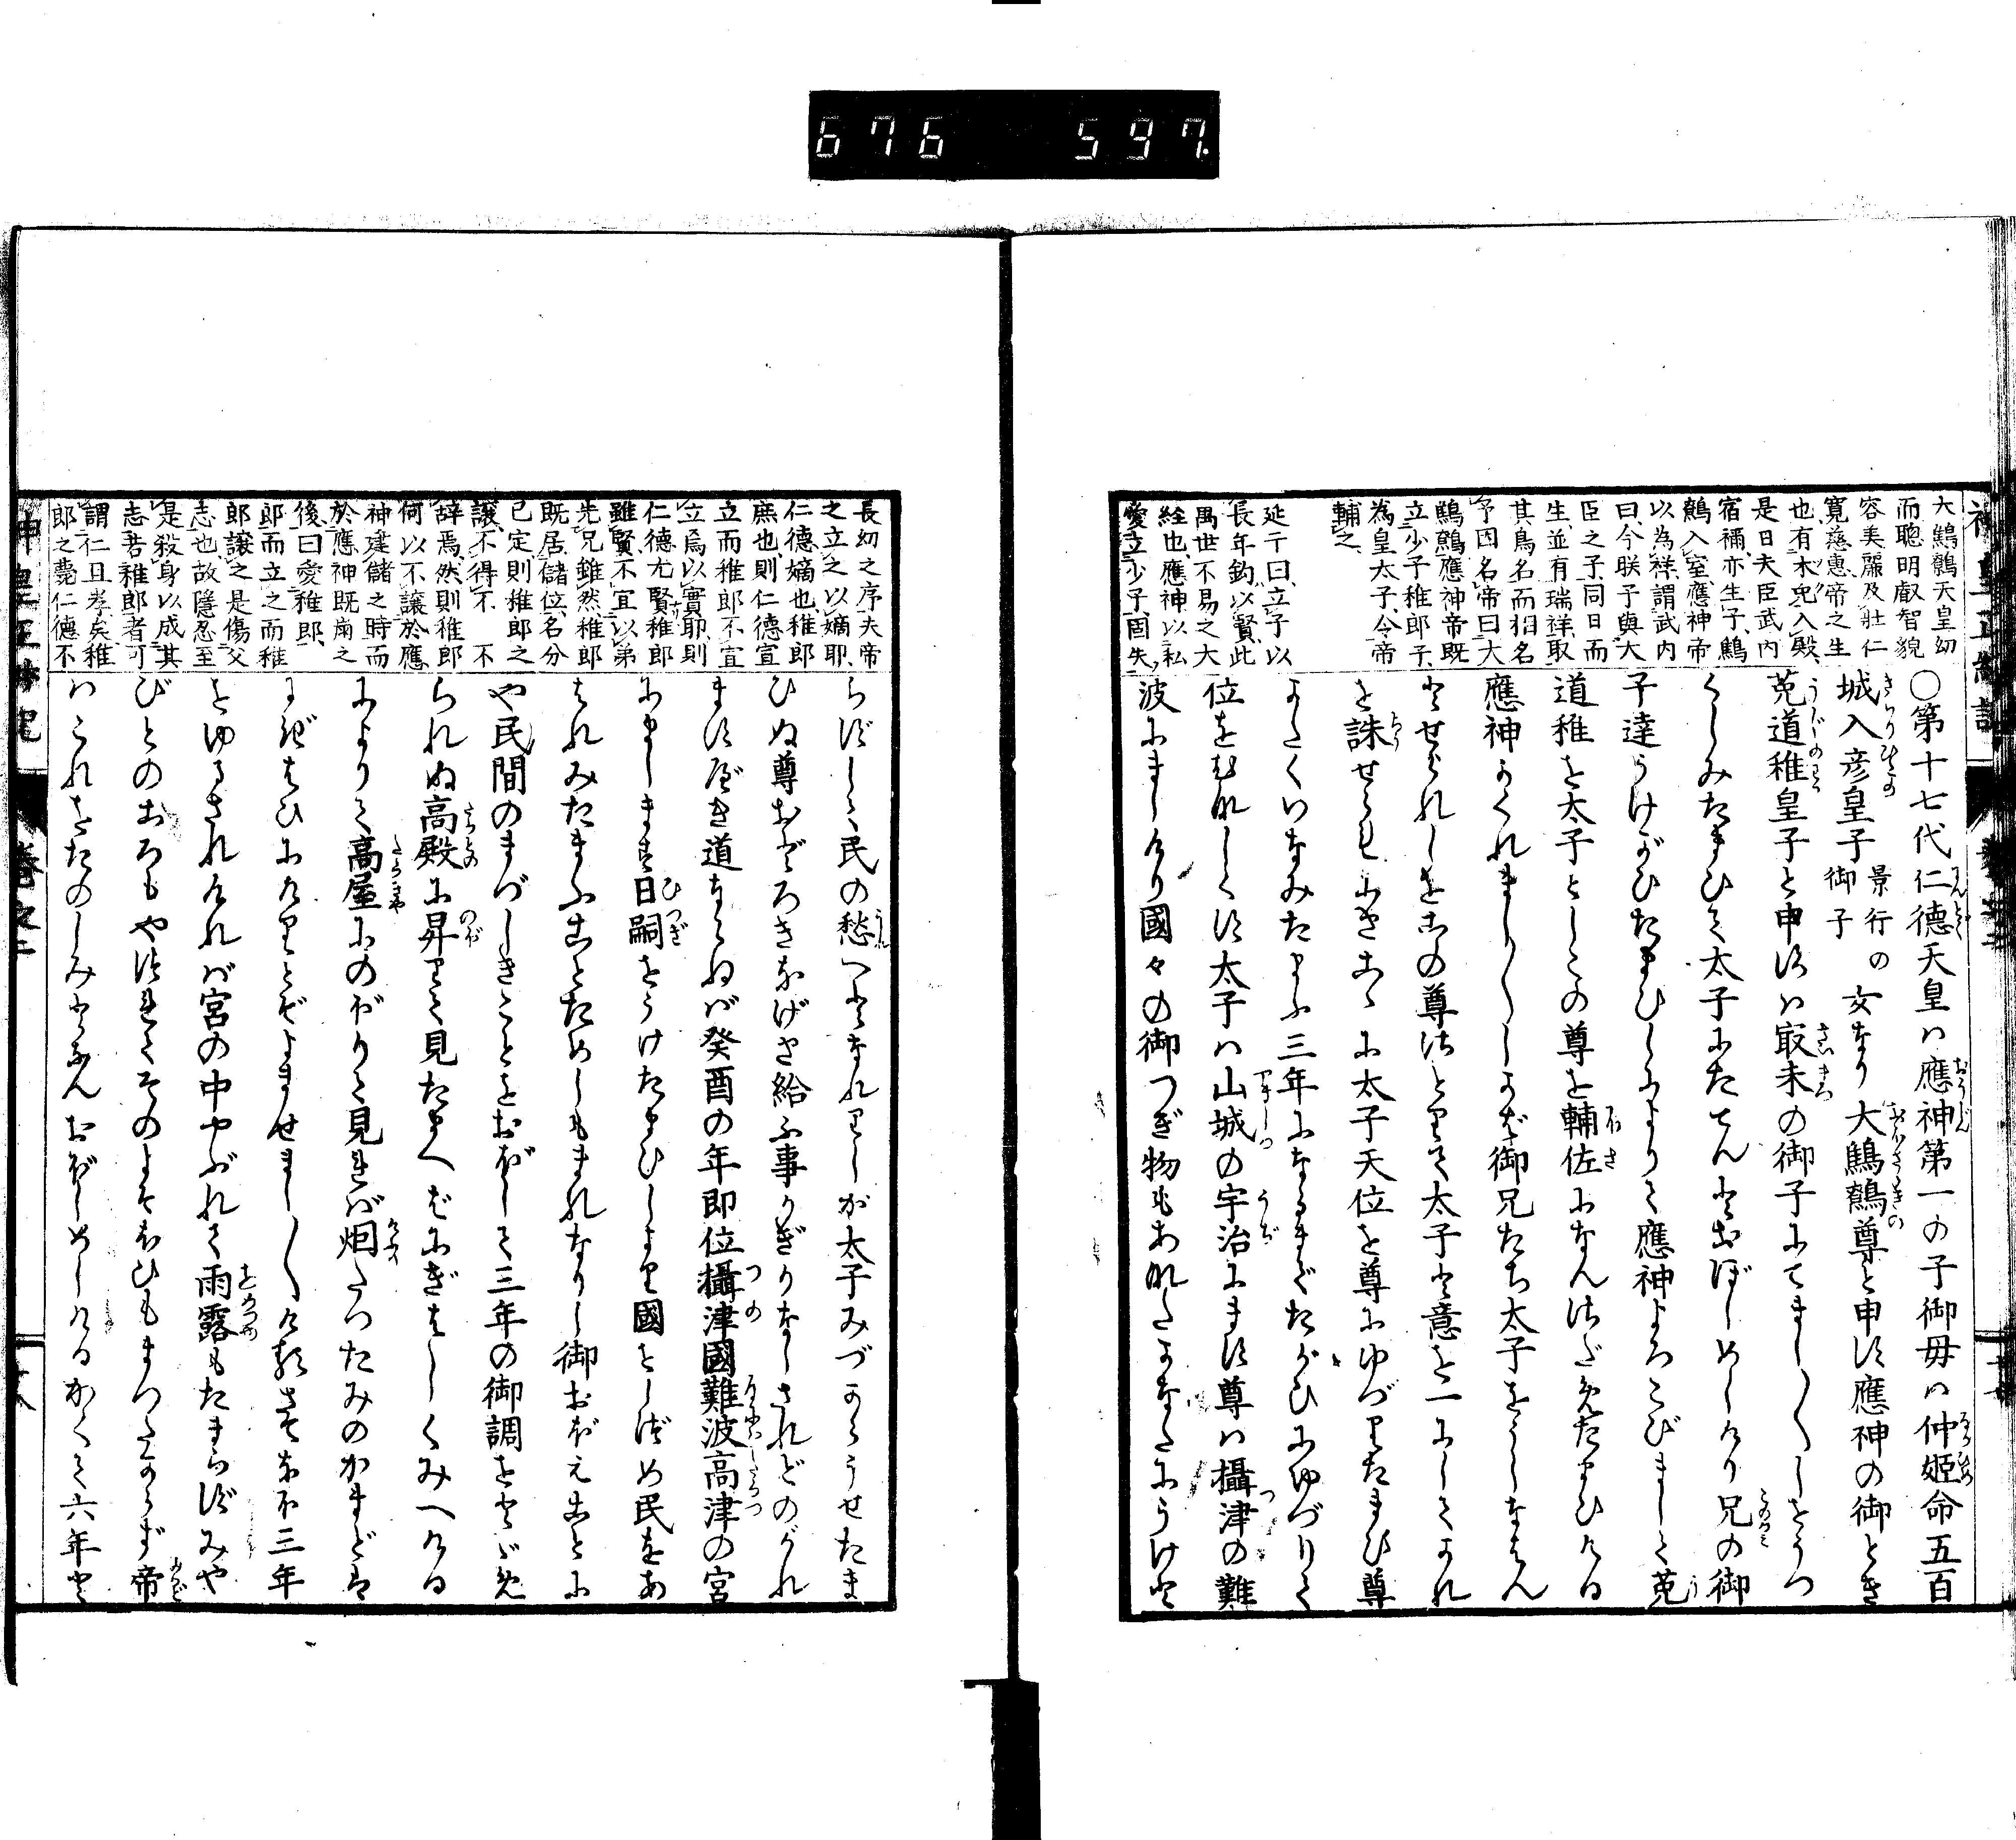 676 597.
大鷦鷯天皇幼
而聰明叡智貌
容美麗及壯仁
寬慈惠帝之生
也有木兎入殿
是日大臣武内
宿禰亦生子鷦
鷯入室應神帝
以為祥謂武内
曰今朕子與大
臣之子同日而
生並有瑞祥取
其鳥名而相名
予因名帝曰大
鷦鷯應神帝既
立少子稚郎子
為皇太子令帝
輔之
延于曰立子以
長年鈞以賢此
萬世不易之大
經也應神以私
愛立少子固失
〇第十七代仁德天皇ハ應神第一の子御母ハ仲姫命五百
城入彦皇子景行の御子女なり大鷦鷯尊と申す應神の御とき
菟道稚皇子と申すハ㝡末の御子にてまし〳〵しをうつ
くしみたまひて太子にたてんとおぼしめしけり兄の御
子達うけがひたまひしによりて應神よろこびまして菟
道稚を太子としこの尊を輔佐になん定めたまひける
應神かくれまし〳〵しかば御兄たち太子をうしなはん
とせられしをこの尊さとりて太子と意を一にしてこれ
を誅せらるゝにきこゝに太子天位を尊にゆづりたまひ尊
かたくいなみたまふ三年になるまでたがひにゆづりて
位をむなしくす太子ハ山城の宇治にます尊ハ攝津の難
波にましけり國々の御つぎ物もあなたかなたにうけと
長幼之序夫帝
之立之以嫡耶
仁德嫡也稚郎
庶也則仁德宜
立而稚郎不宜
立焉以實耶則
仁德尤賢稚郎
雖賢不宜以弟
先兄雖然稚郎
既居儲位名分
已定則稚郎之
讓不得不不
辞焉然則稚郎
何以不讓於應
神建儲之時而
於應神既崩之
後曰愛稚郎
郎而立之而稚
郎讓之是傷父
志也故隱忍至
是殺身以成其
志若稚郎者可
謂仁且孝矣稚
郎之薨仁德不
らずして民の愁へとなれりしが太子みづからうせたま
ひぬ尊おどろきなげき給ふ事かぎりなしされどのがれ
ますべき道ならねバ癸酉の年即位攝津國難波高津の宮
にまします日嗣をうけたまひしより國をしづめ民をあ
はれみたまふことためしもまれなりし御おぼえことに
や民間のまづしきことをおぼして三年の御調をとゞめ
られぬ高殿に昇りて見たまへばにぎはしくみへける
によりて高屋にのぼりて見れバ烟たつたみのかまどは
にぎはひにけりとぞよませまし〳〵けるさてなほ三年
をゆるされけれバ宮の中やぶれて雨露もたまらずみや
びとのおろもやぶれてそのよそほひもまつたからず帝
ハこれをたのしみとなんおぼしめしけるかくて六年と
神皇正統記
卷之二